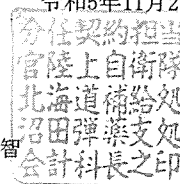 令和5年11月2
分任契約担当
官陸上自衛隊
北海道補給処
沼田弾薬支処
智
会計科長之印